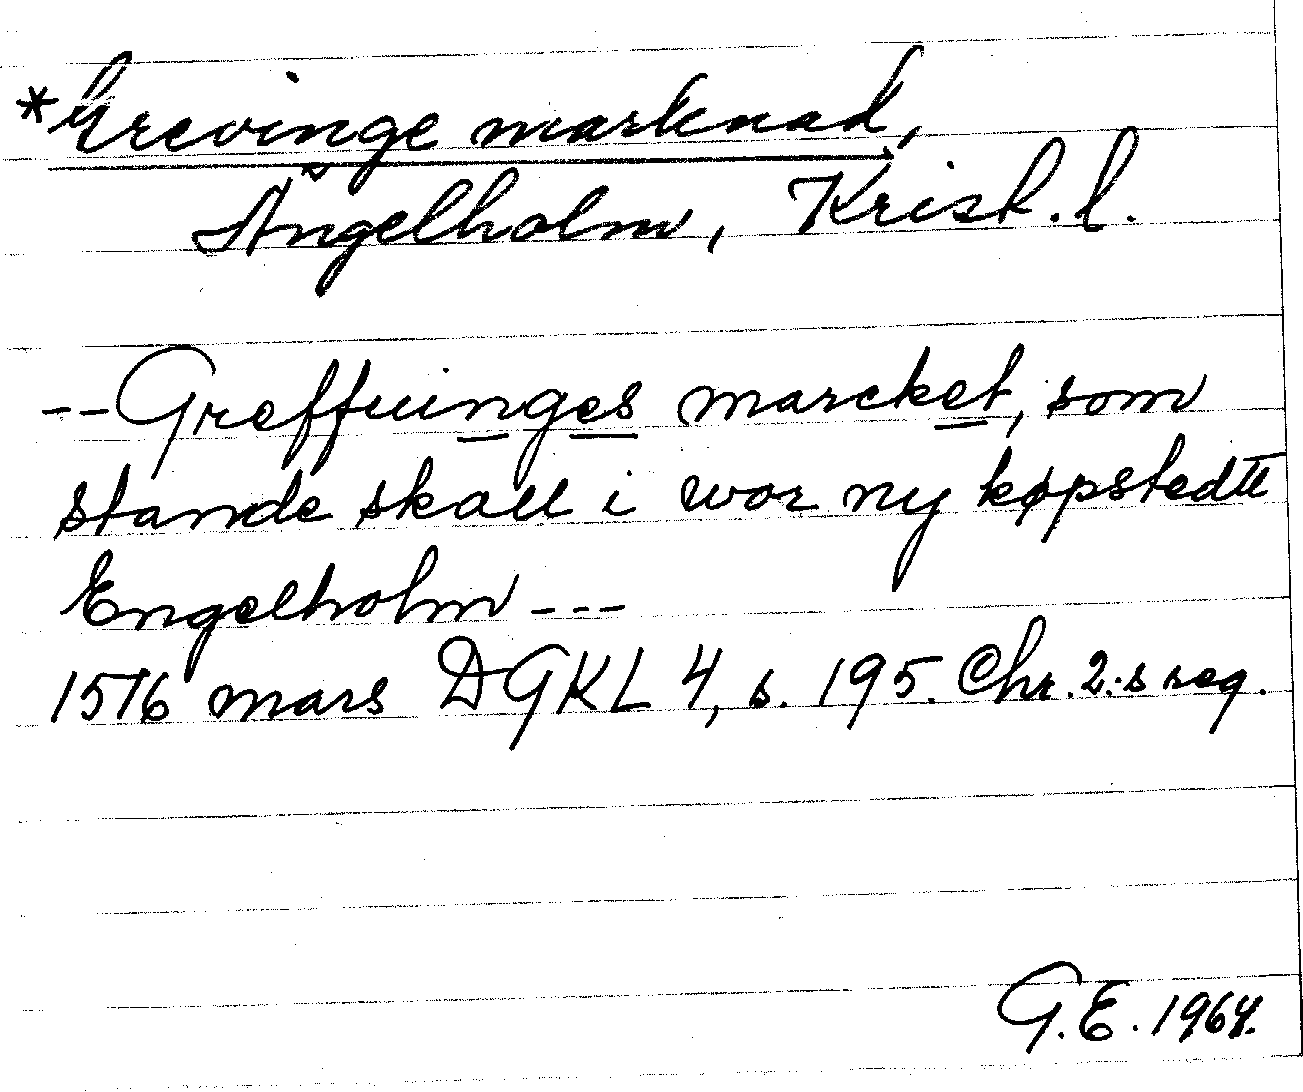 *Grevinge marknad,
Ängelholm, Krist. l.
--Greffuinges marcket, som
stande skall i wor ny købstedtt
Engelholm ---
1516 mars DGKL 4, s. 195. Chr. 2:s reg.
G.E. 1964.